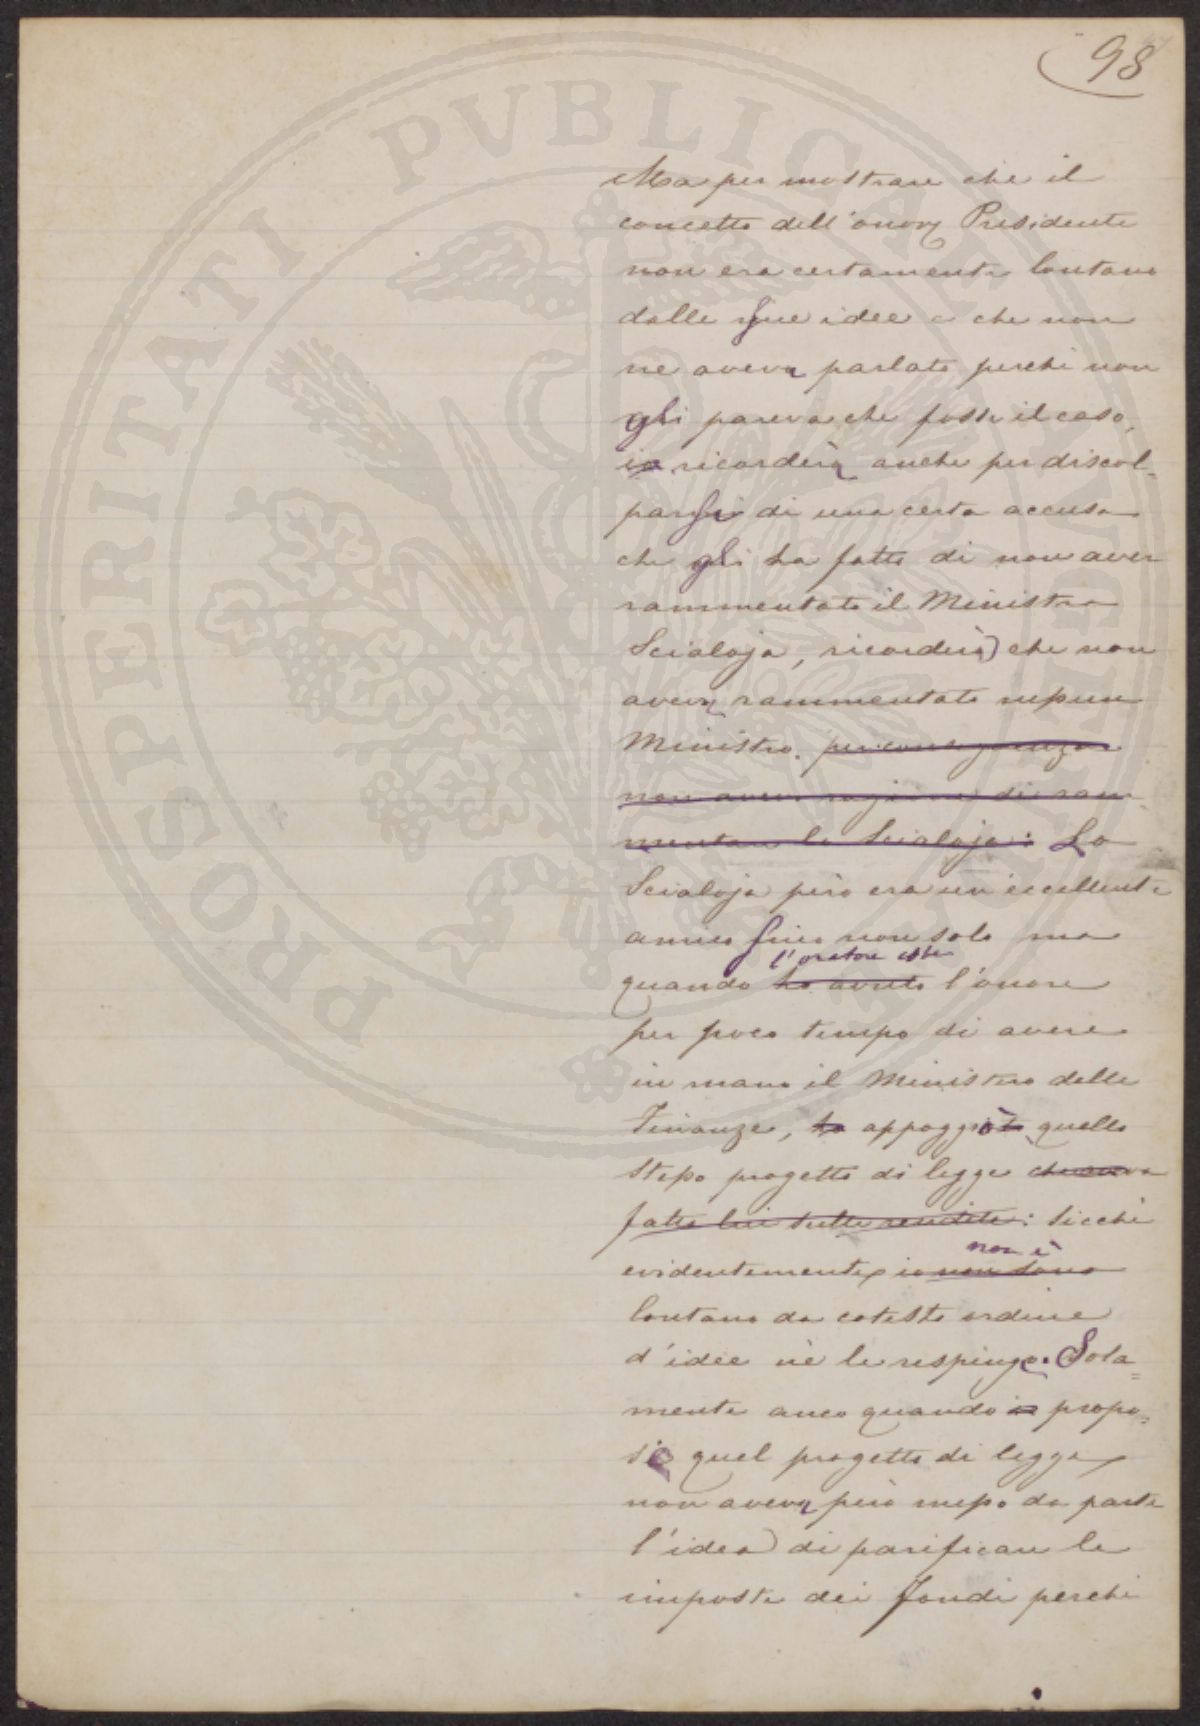 98
PROSPERITATI PVBLICAE AVGENDAE
Ma per mostrare che il
concetto dell'onor Presidente
non era certamente lontano
dalle sue idee e che non
ne aveva parlato perchè non
gli pareva che fosse il caso,
io ricorderà anche per discol-
parsi di una certa accusa
che gli ha fatto di non aver
rammentato il Ministro
Scialoja, ricorderà che non
aveva rammentato nessun
Ministro. per conseguenza
non aveva ragione di ram-
mentare lo Scialoja: Lo
Scialoja però era un eccellente
amico suo non solo ma
l'oratore ebbe
quando ha avuto l'onore
per poco tempo di avere
in mano il Ministero delle
Finanze, ha appoggiò quello
stesso progetto di legge che aveva
fatto lui sulle rendite: sicchè
non è
evidentemente io non sono
lontano da cotesto ordine
d'idee nè le respinge. Sola=
mente anco quando io propo=
se quel progetto di legge
non aveva però messo da parte
l'idea di parificare le
imposte dei fondi perchè